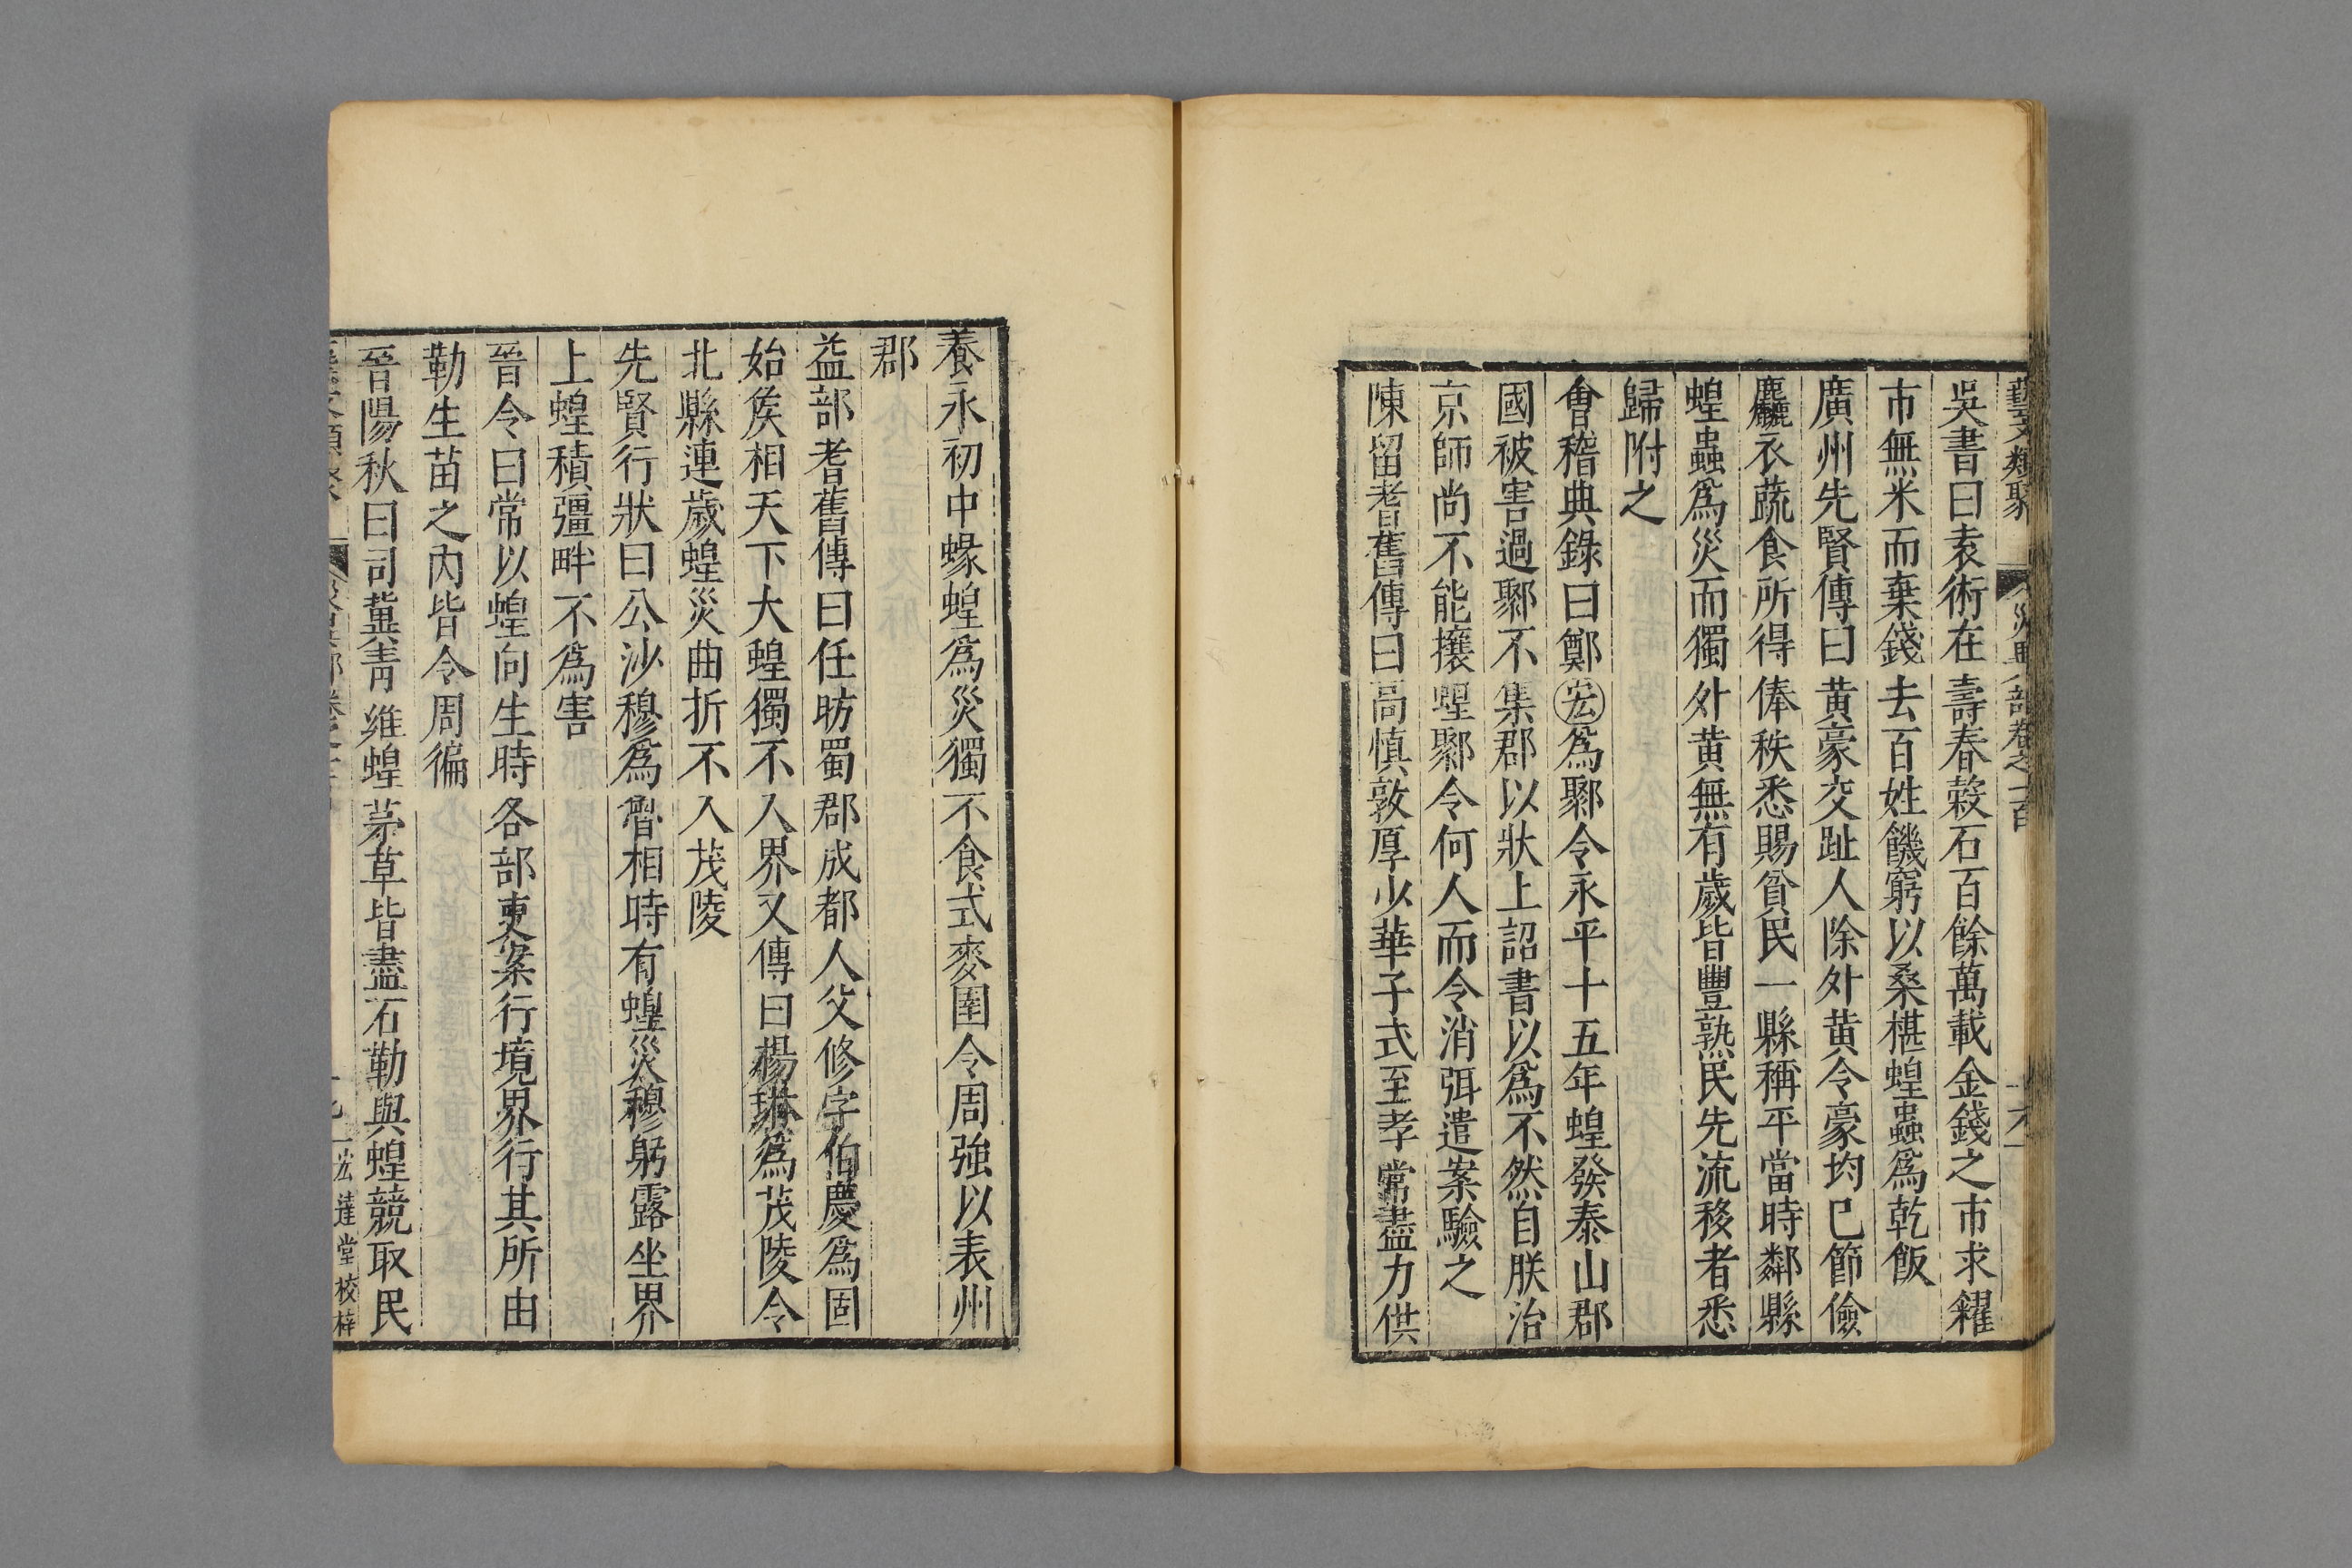 藝文類聚 災異部卷之一百 十八
吳書曰袁術在壽春穀石百餘萬載金錢之市求糴
市無米而棄錢去百姓饑窮以桑椹蝗蟲爲乾飯
廣州先賢傳曰黄豪交趾人除外黄令豪均己節儉
麤衣蔬食所得俸秩悉賜貧民一縣稱平當時鄰縣
蝗蟲爲災而獨外黄無有歲皆豐熟民先流移者悉
歸附之
會稽典錄曰鄭宏爲鄹令永平十五年蝗發泰山郡
國被害過鄹不集郡以狀上詔書以爲不然自朕治
京師尚不能攘蝗鄹令何人而令消弭遣案驗之
陳留耆舊傳曰高慎敦厚少華子式至孝常盡力供
養永初中蝝蝗爲災獨不食式麥圉令周強以表州
郡
益部耆舊傳曰任昉蜀郡成都人父修字伯慶爲固
始矦相天下大蝗獨不入界又傳曰楊琳爲茂陵令
北縣連歲蝗災曲折不入茂陵
先賢行狀曰公沙穆爲魯相時有蝗災穆躬露坐界
上蝗積彊畔不爲害
晉令曰常以蝗向生時各部吏案行境界行其所由
勒生苗之內皆令周徧
晉陽秋曰司冀青雍蝗茅草皆盡石勒與蝗競取民
宏達堂校梓